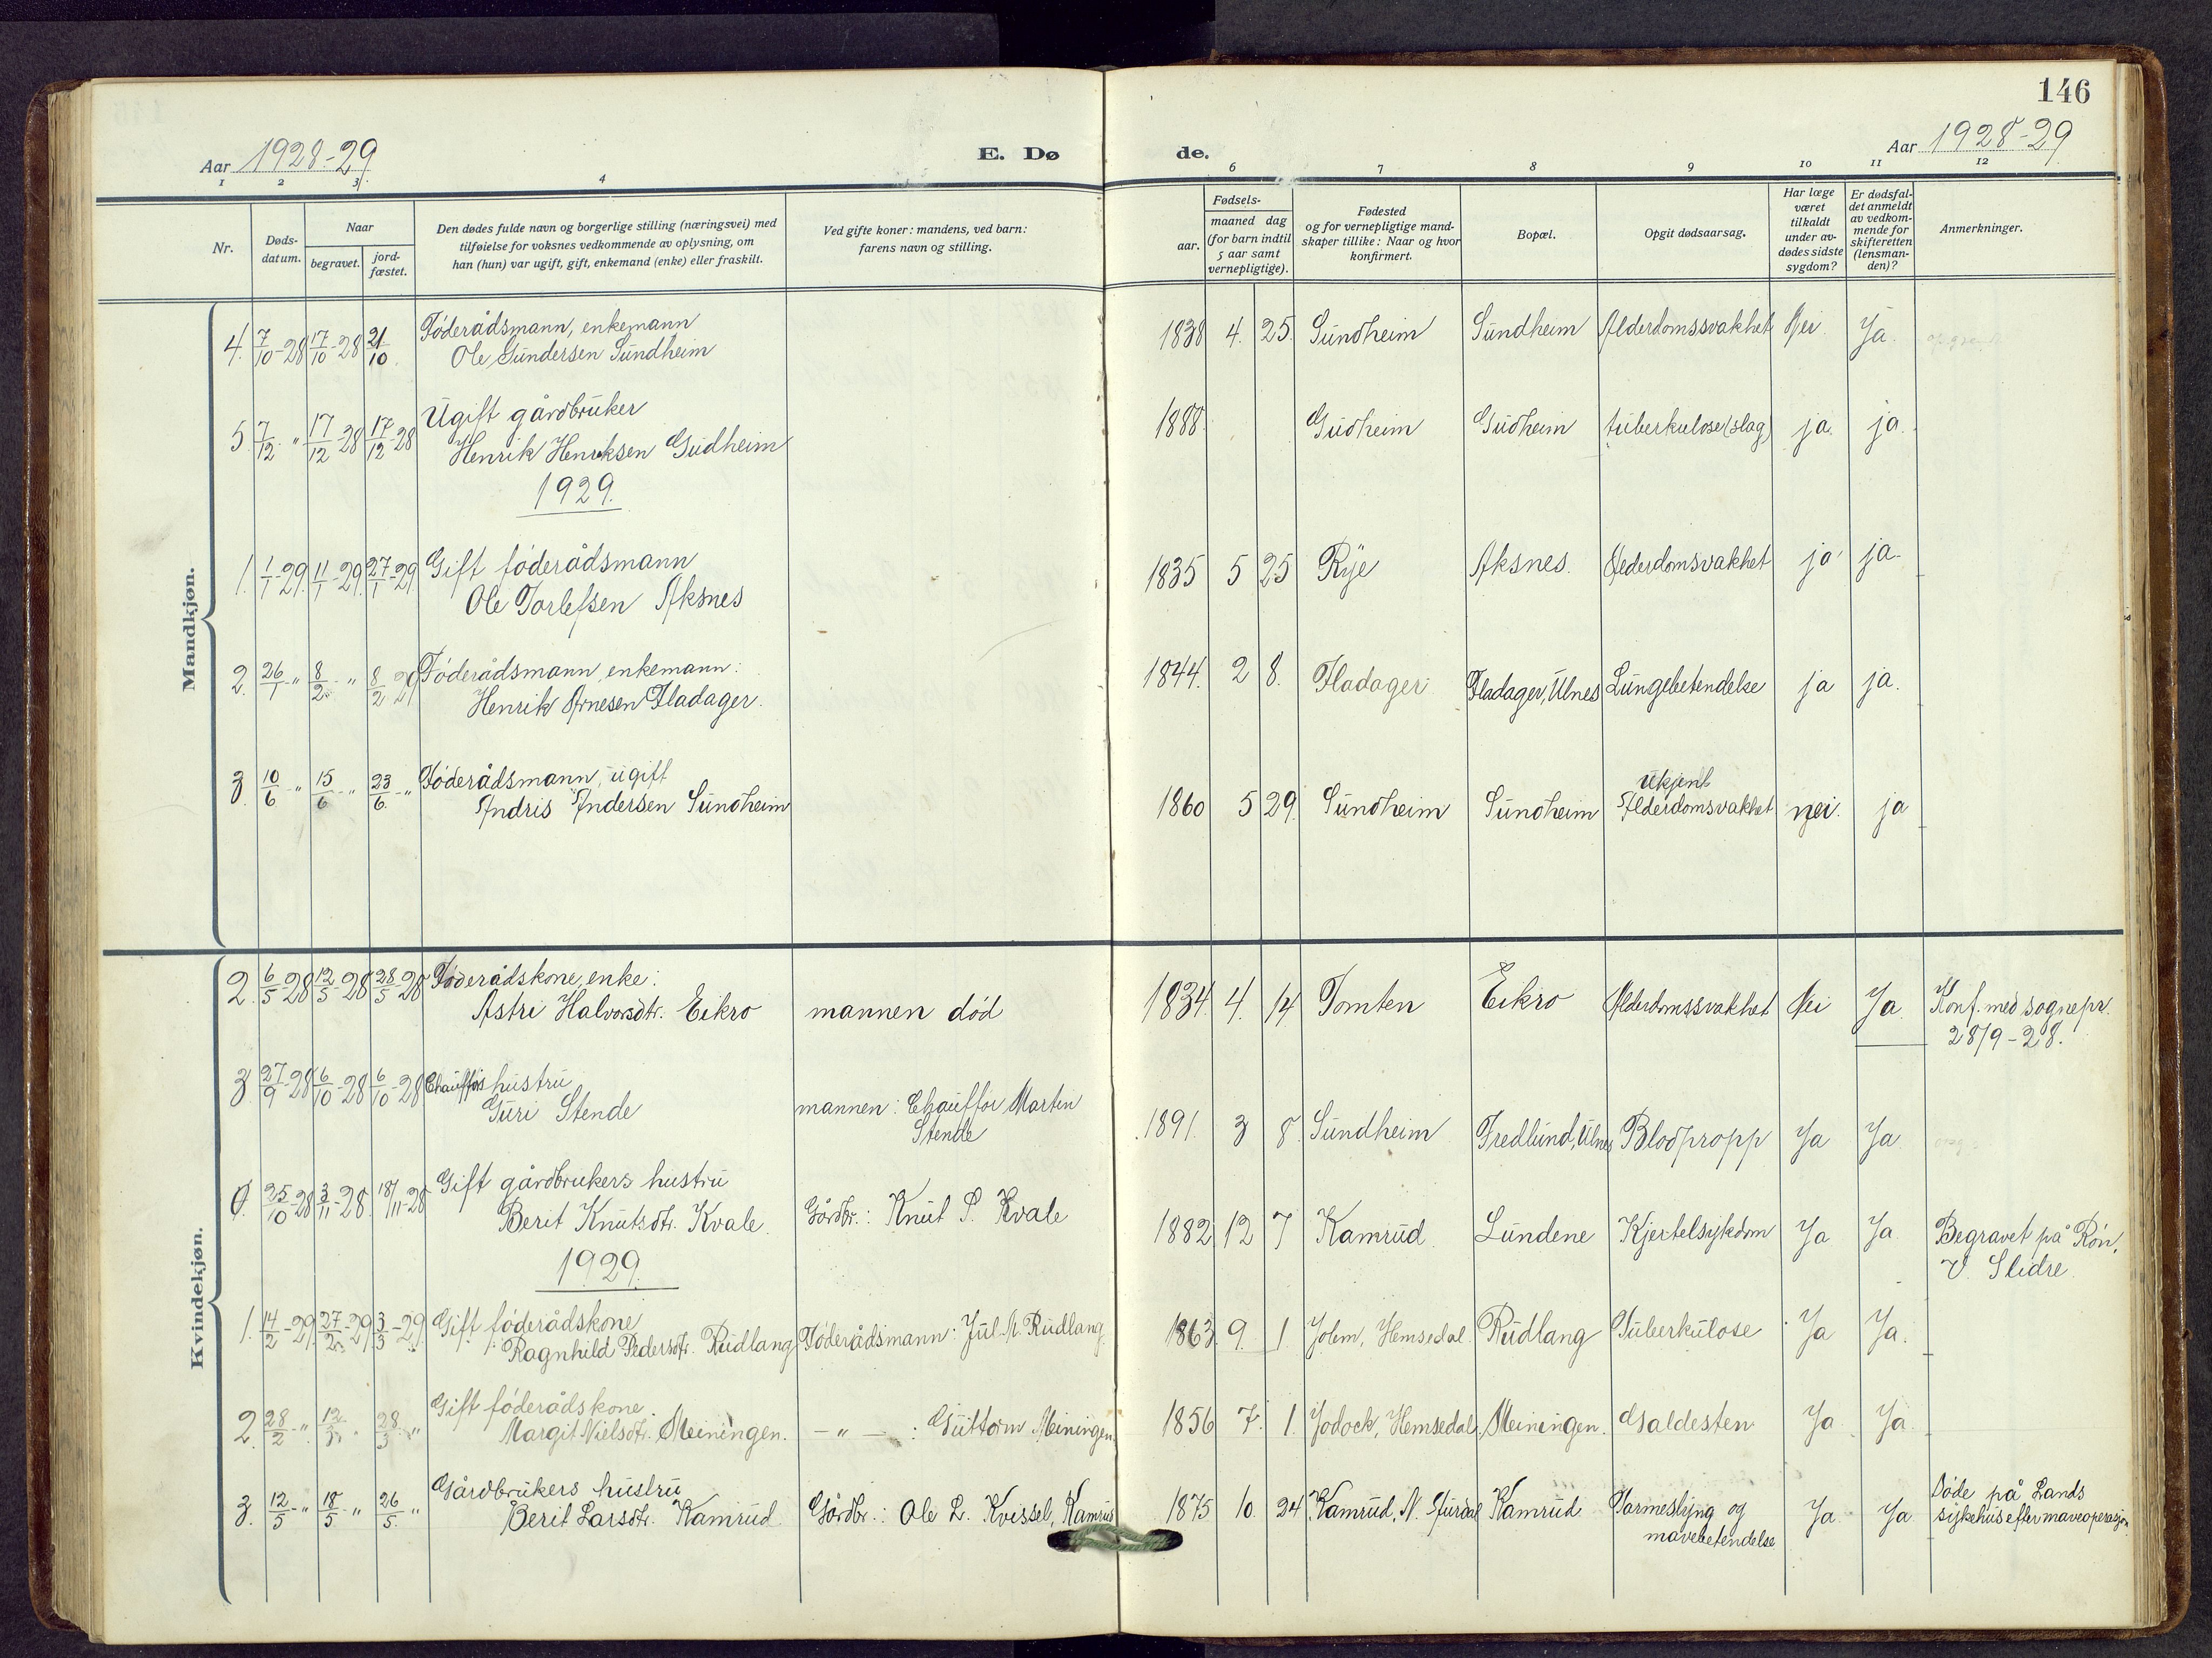 146
Aar 1928-29
E. Dø
de.
Aar 1928-29
1 2 3 4 6 7 8 9 10 11 12
Nr.
Døds-
datum.
Naar
begravet.
jord-
fæstet.
Den dødes fulde navn og borgerlige stilling (næringsvei) med
tilføielse for voksnes vedkommende av oplysning, om
han (hun) var ugift, gift, enkemand (enke) eller fraskilt.
Ved gifte koner: mandens, ved barn:
farens navn og stilling.
Fødsels-
aar.
maaned dag
(for barn indtil
5 aar samt
vernepligtige).
Fødested
og for vernepligtige mand-
skaper tillike: Naar og hvor
konfirmert.
Bopæl.
Opgit dødsaarsag.
Har læge
været
tilkaldt
under av-
dødes sidste
sygdom?
Er dødsfal-
det anmeldt
av vedkom-
mende for
skifteretten
(lensman-
den)?
Anmerkninger.
Mandkjøn.
4. 7/10-28 17/10-28 21/10. Föderådsmann, enkemann
Ole Gundersen Sundheim
1838 4. 25. Sundheim Sundheim Alderdomssvakhet Nei. Ja.
5 7/12 " 17/12-28 17/12-28 Ugift gårdbruker
Henrik Henriksen Gudheim
1888. Gudheim Gudheim tuberkulose (slag) ja. ja.
1929.
1. 1/1-29. 11/1-29. 27/1-29 Gift föderådsmann
Ole Torlefsen Aksnes
1835 5 25 Rye Aksnes. Alderdomsvakhet ja ja.
2. 26/1-" 8/2-" 8/2 29 Föderådsmann, enkemann:
Henrik Arnesen Fladager.
1844. 2 8. Fladager Fladager, Ulnes Lungebetendelse ja ja.
3. 10/6 " 15/6-" 23/6-" Föderådsmann, ugift
Andris Andersen Sundheim
1860 5 29. Sundheim Sundheim
Ukjent
Alderdomsvakhet nei. ja
Kvindekjøn.
2. 6/5-28 12/5-28 28/5-28 Föderådskone, enke:
Astri Halvorsdtr. Eikro mannen död
1834. 4. 14 Tomten Eikro Alderdomssvakhet Nei Ja. Konf. med sognepr.
28/9-28.
3. 27/9-28 6/10-28 6/10-28 Chaufförs hustru
Guri Stende mannen: Chaufför Martin
Stende
1891. 3 8. Sundheim Fredlund, Ulnes Blodpropp Ja Ja
25/10-28 3/11-28. 18/11-28 Gift gårdbrukers hustru
Berit Knutsdtr. Kvale. Gårdbr.: Knut P. Kvale
1882 12 7 Kamrud. Lundene Kjertelsykdom Ja Ja Begravet på Rön,
V. Slidre.
1929.
1. 14/2-29. 27/2-29. 3/3-29. Gift föderådskone
Ragnhild Pedersdtr. Rudlang Föderådsmann: Jul. N. Rudlang
1863. 9. 1. Hemsedal. Rudlang Tuberkulose Ja Ja.
2. 28/2-" 12/3 " 28/3 " Gift föderådskone
Margit Nielsdtr. Meiningen. - " - : Guttorm Meiningen.
1856 7. 1. Hemsedal. Meiningen. Galdesten Ja Ja
3. 12/5-" 18/5 " 26/5. " Gårdbrukers hustru
Berit Larsdtr. Kamrud. Gårdbr.: Ole L. Kvissel, Kamrud
1875 10 24 Kamrud, N. Aurdal Kamrud Tarmeslyng og
mavebetendelse Ja Ja Döde på Lands
sykehus efter maveoperasjon